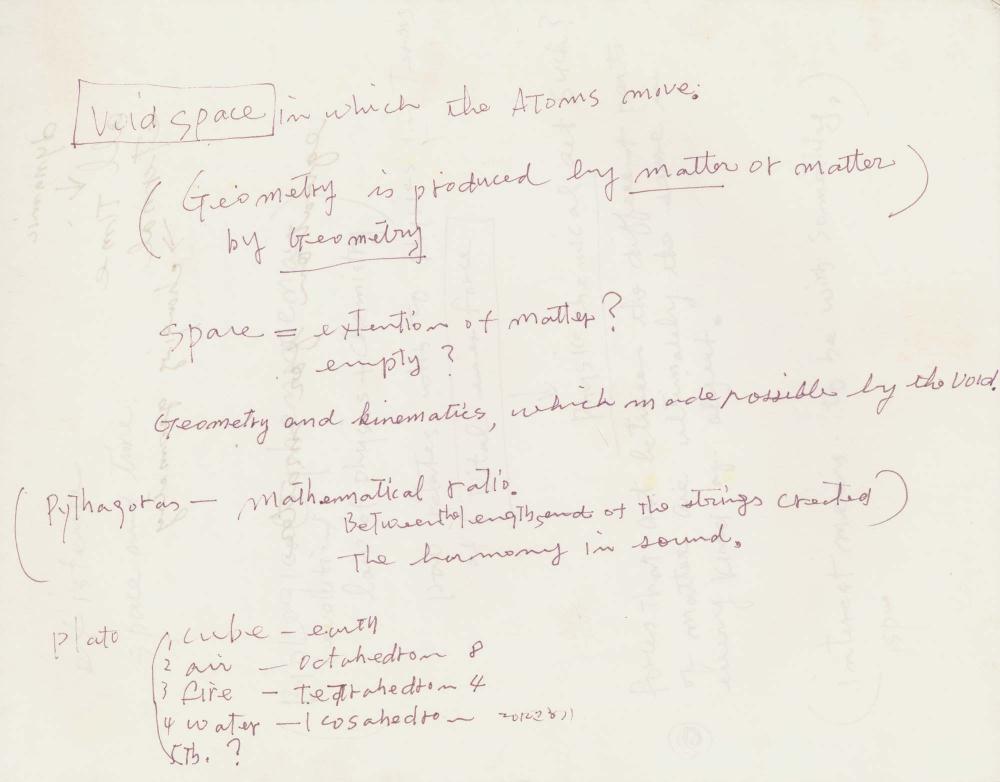 Void space in which the Atoms move.
(Geometry is produced by matter or matter
by Geometry)
space = extention of matter?
empty?
Geometry and kinematics, which made possible by the Void.
(Pythagoras — Mathematical ratio.
Between the lengths of the strings created)
The harmony in sound.
Plato
1, cube – earth
2 air — octahedron 8
3 fire — tetrahedron 4
4 water — Icosahedron
5th. ?